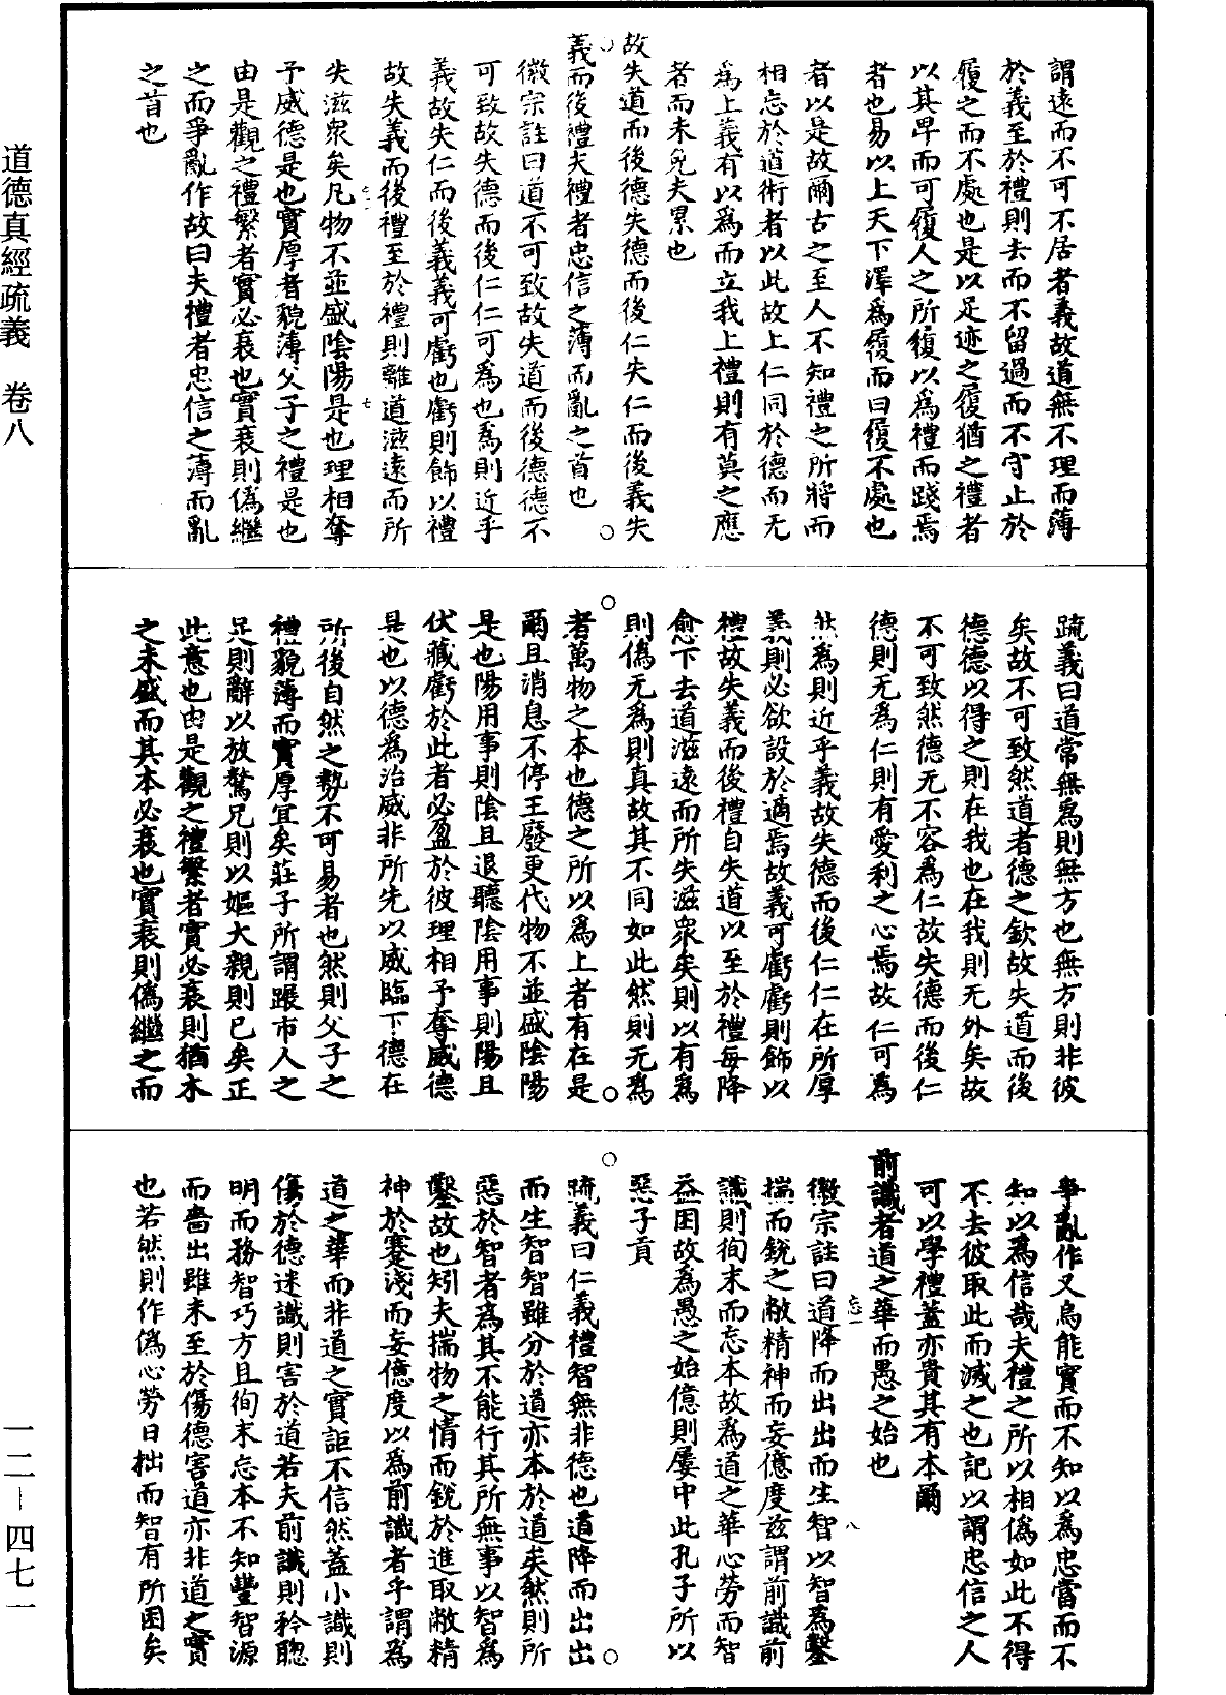 謂遠而不可不居者義故道無不理而薄
於義至於禮則去而不留過而不守止於
履之而不處也是以足迹之履猶之禮者
以其卑而可履人之所履以為禮而踐焉
者也易以上天下澤為履而曰履不處也
者以是故爾古之至人不知禮之所將而
相忘於道術者以此故上仁同於德而无
為上義有以為而立我上禮則有莫之應
者而未免夫累也
故失道而後德失德而後仁失仁而後義失
義而後禮夫禮者忠信之薄而亂之首也
徽宗註曰道不可致故失道而後德德不
可致故失德而後仁仁可為也為則近乎
義故失仁而後義義可虧也虧則飾以禮
故失義而後禮至於禮則離道滋遠而所
失滋眾矣凡物不並盛陰陽是也理相奪
予威德是也實厚者貌薄父子之禮是也
由是觀之禮繁者實必衰也實衰則偽繼
之而爭亂作故曰夫禮者忠信之薄而亂
之首也
疏義曰道常無為則無方也無方則非彼
矣故不可致然道者德之欽故失道而後
德德以得之則在我也在我則无外矣故
不可致然德无不容為仁故失德而後仁
德則无為仁則有愛利之心焉故仁可為
然為則近乎義故失德而後仁仁在所厚
義則必欲設於適焉故義可虧虧則飾以
禮故失義而後禮自失道以至於禮每降
愈下去道滋遠而所失滋眾矣則以有為
則偽无為則真故其不同如此然則无為
者萬物之本也德之所以為上者有在是
爾且消息不停王廢更代物不並盛陰陽
是也陽用事則陰且退聽陰用事則陽且
伏藏虧於此者必盈於彼理相予奪威德
是也以德為治威非所先以威臨下德在
所後自然之勢不可易者也然則父子之
禮貌薄而實厚宜矣莊子所謂蹍市人之
足則辭以放驁兄則以嫗大親則已矣正
此意也由是觀之禮繁者實必衰則猶木
之末盛而其本必衰也實衰則偽繼之而
爭亂作又烏能實而不知以為忠當而不
知以為信哉夫禮之所以相偽如此不得
不去彼取此而滅之也記以謂忠信之人
可以學禮蓋亦貴其有本爾
前識者道之華而愚之始也
徽宗註曰道降而出出而生智以智為鑿
揣而銳之敝精神而妄億度茲謂前識前
識則徇末而忘本故為道之華心勞而智
益困故為愚之始億則屢中此孔子所以
惡子貢
疏義曰仁義禮智無非德也道降而出出
而生智智雖分於道亦本於道矣然則所
惡於智者為其不能行其所無事以智為
鑿故也矧夫揣物之情而銳於進取敝精
神於蹇淺而妄億度以為前識者乎謂為
道之華而非道之實詎不信然蓋小識則
傷於德迷識則害於道若夫前識則矜聰
明而務智巧方且徇末忘本不知豐智源
而嗇出雖未至於傷德害道亦非道之實
也若然則作偽心勞日拙而智有所困矣
忘一
七
八
道德真經疏義　卷八
一二－四七一